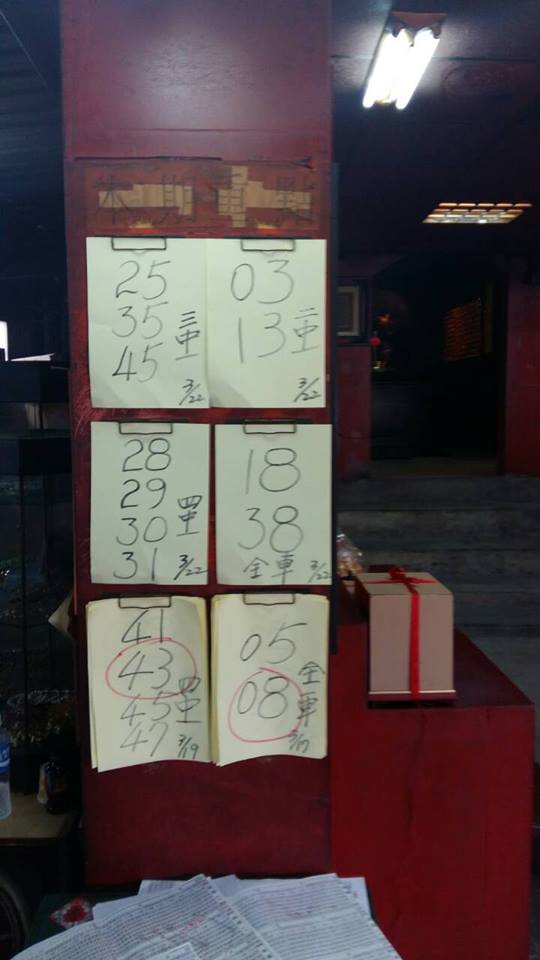 本期重點
25
35
45
三中
3/22
03
13
二中
3/22
28
29
30
31
四中
3/22
18
38
全車
3/22
41
43
45
47
四中
3/19
05
08
全車